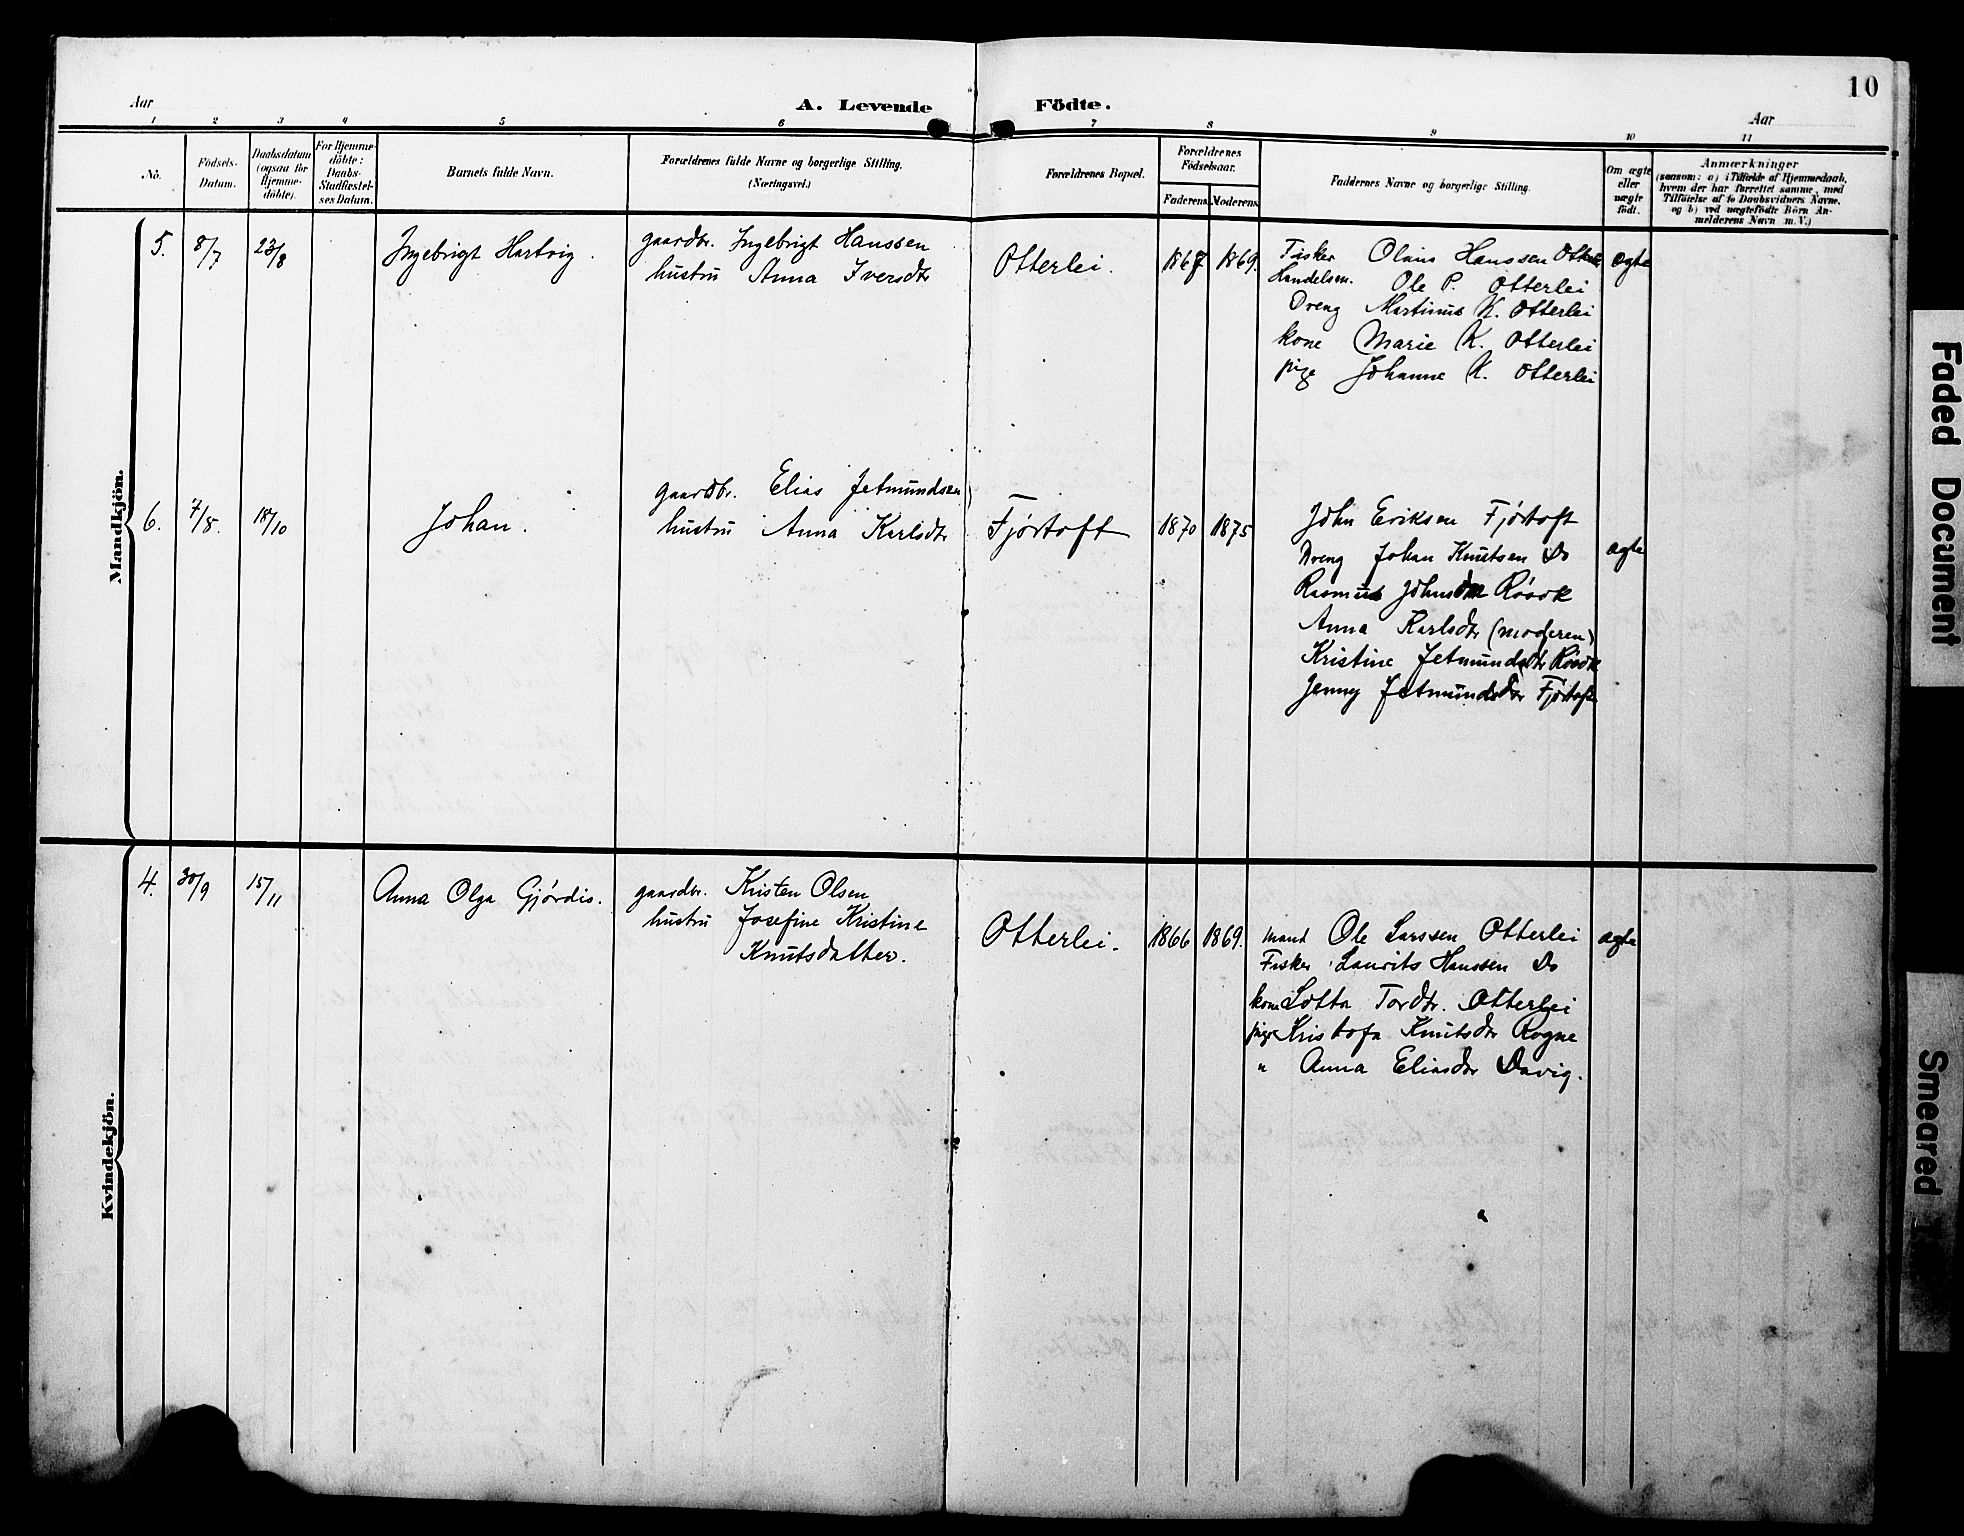 10
Aar
A. Levende Födte.
Aar
1 2 3 4 5 6 7 8 9 10 11
No.
Födsels-Datum.
Daabsdatum (ogsaa for Hjemme-döbte).
For Hjemme-döbte: Daabs-Stadfæstel-ses Datum.
Barnets fulde Navn.
Forældrenes fulde Navne og borgerlige Stilling. (Næringsvei.)
Forældrenes Bopæl.
Forældrenes Födselsaar.
Faderens
Moderens
Faddernes Navne og borgerlige Stilling.
Om ægte eller uægte födt.
Anmærkninger
(saasom: a) i Tilfælde af Hjemmedaab,
hvem der har forrettet samme, med
Tilföielse af to Daabsvidners Navne.
og b) ved uægtefödte Börn An-
melderens Navn m. V.)
Mandkjön.
5. 8/7 23/8 Ingebrigt Hartvig.
gaardbr. Ingebrigt Hanssen
hustru Anna Iversdtr
Otterlei. 1867 1869.
Fisker Olaus Hanssen
Handelsm. Ole P. Otterlei
Dreng Martinus K. Otterlei
kone Marie K. Otterlei
pige Johanne K. Otterlei
ægte
6. 7/8. 18/10 Johan.
gaardbr. Elias Jetmundsen
hustru Anna Karlsdtr
Fjørtoft 1870 1875
John Eriksen Fjørtoft
Dreng Johan Knutsen Do
Rasmus Røsok
Anna Karlsdtr (moderen)
Kristine Jetmundsdtr Røsok
Jenny Jetmundsdtr Fjørtoft
ægte
Kvindekjön.
4. 30/9 15/11 Anna Olga Gjørdis.
gaardbr. Kristen Olsen
hustru Josefine Kristine
Knutsdatter.
Otterlei. 1866 1869.
mand Ole Larssen Otterlei
Fisker Laurits Hanssen Do
kone Lotta Tordtr. Otterlei
pige Kristofa Knutsdtr Rogne
" Anna Eliasdtr Davig.
ægte
Faded Document
Smeared